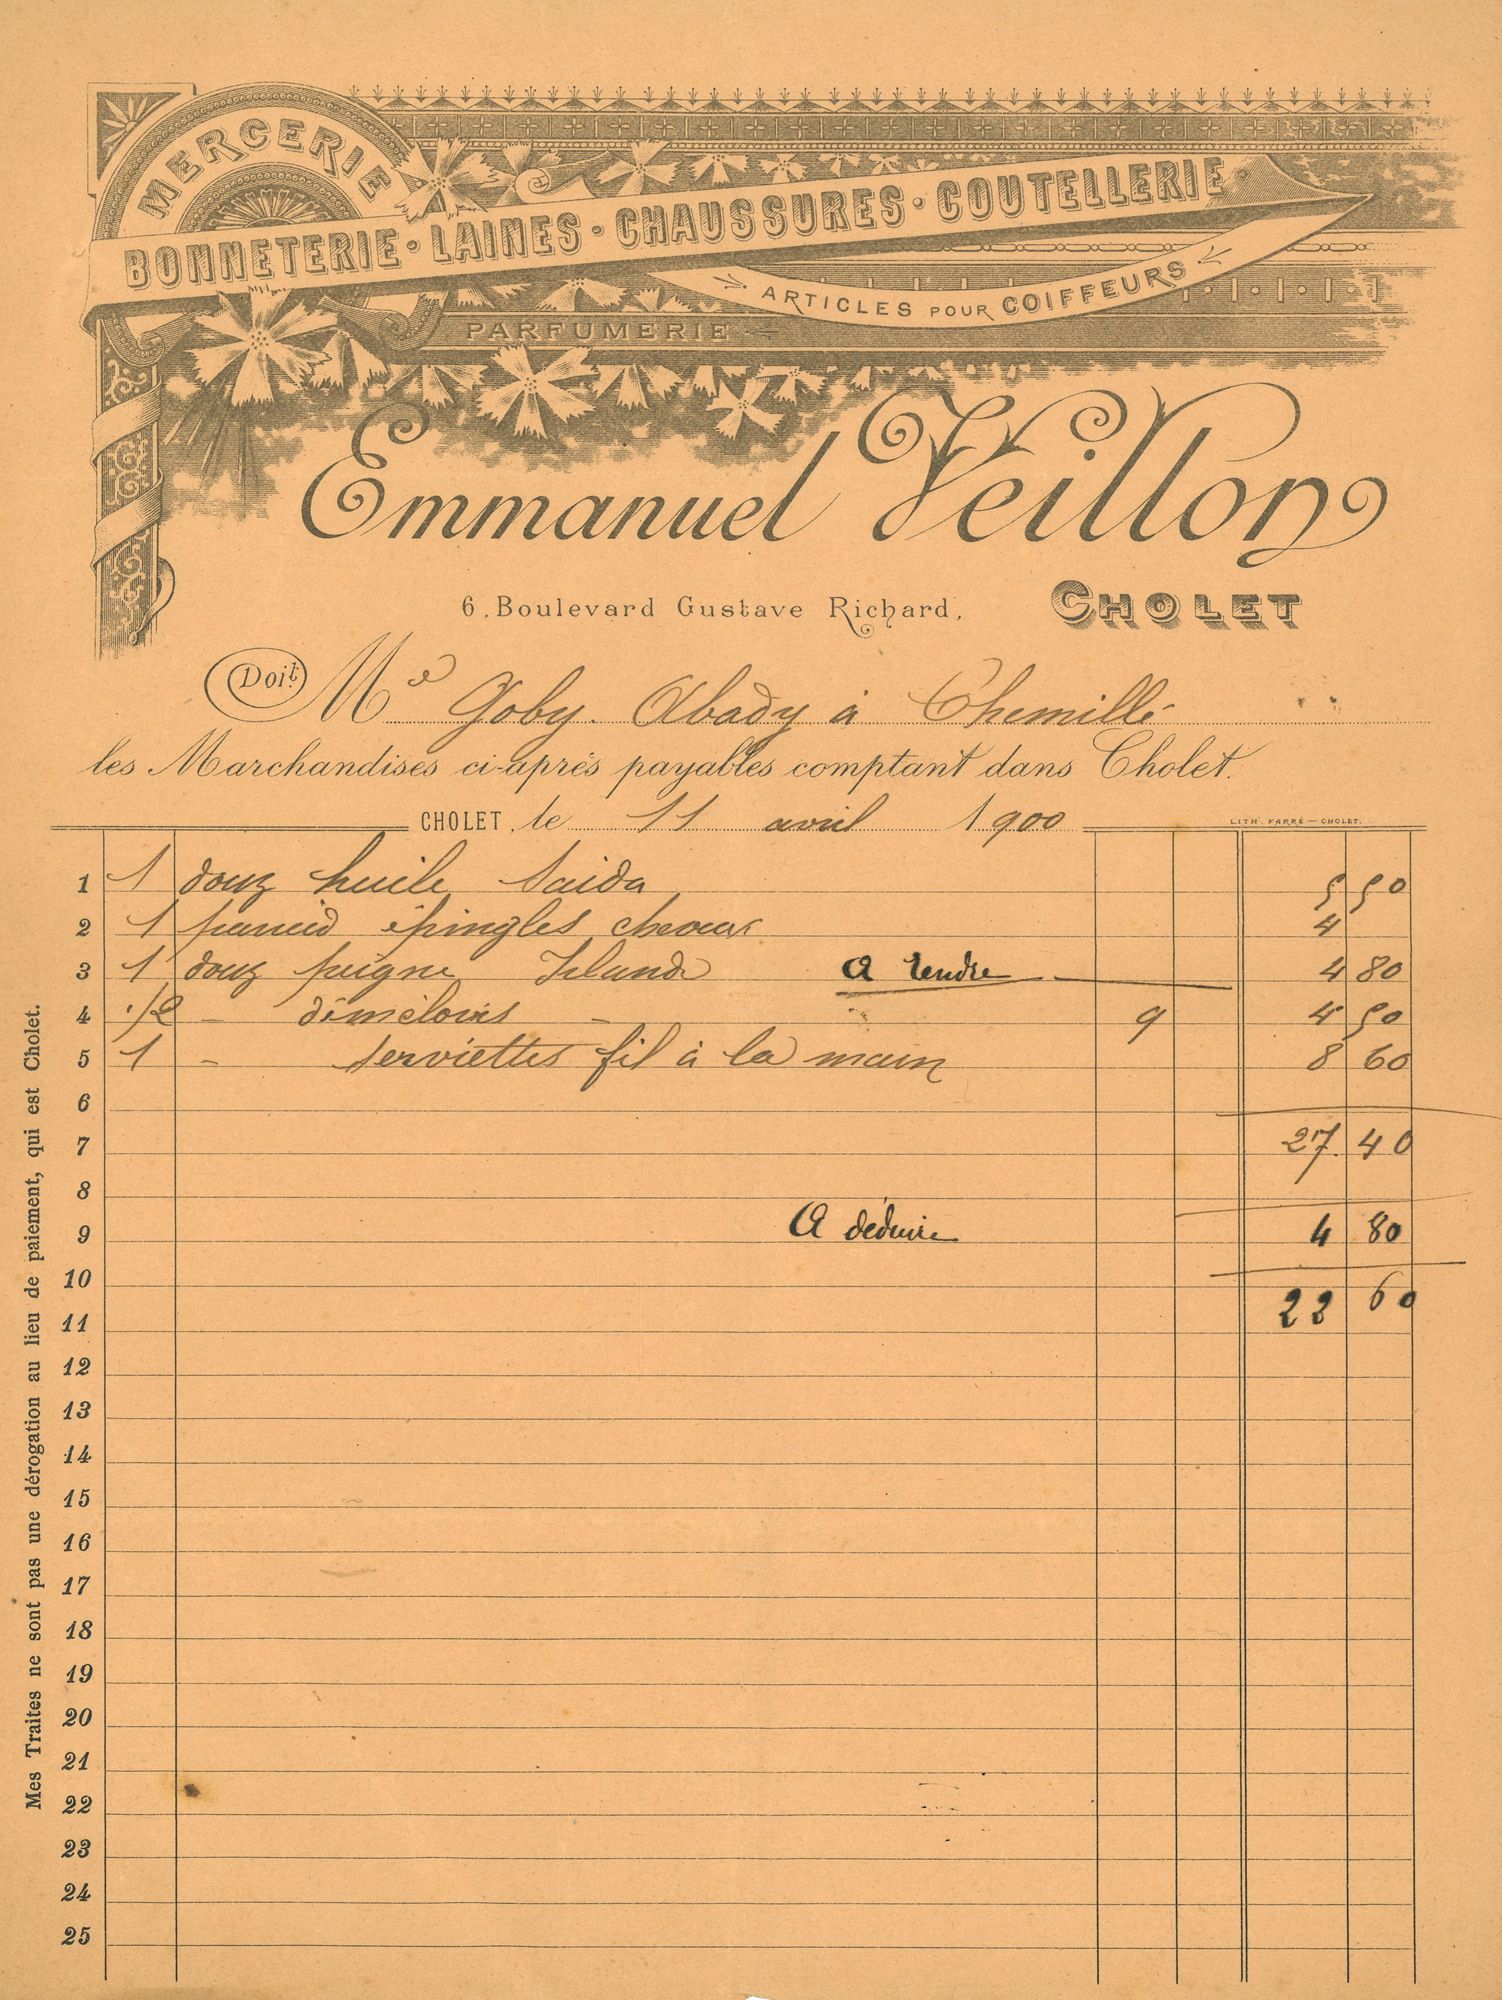 MERCERIE
BONNETERIE · LAINES · CHAUSSURES · COUTELLERIE
ARTICLES POUR COIFFEURS
PARFUMERIE
Emmanuel Veillon
6, Boulevard Gustave Richard, CHOLET
Doit Me Goby. Abady à Chemillé
les Marchandises ci-après payables comptant dans Cholet.
CHOLET, le 11 avril 1900
LITH. FARRÉ — CHOLET.
1 1 douz huile Saida 5 50
2 1 épingles cheveux 4
3 1 douz peigne Irlande A rendre 4 80
4 1/2 - démêloirs - 9 4 50
5 1 - serviettes fil à la main 8 60
6
7 27. 40
8
9 A déduire 4 80
10
11 22 60
12
13
14
15
16
17
18
19
20
21
22
23
24
25
Mes Traites ne sont pas une dérogation au lieu de paiement, qui est Cholet.